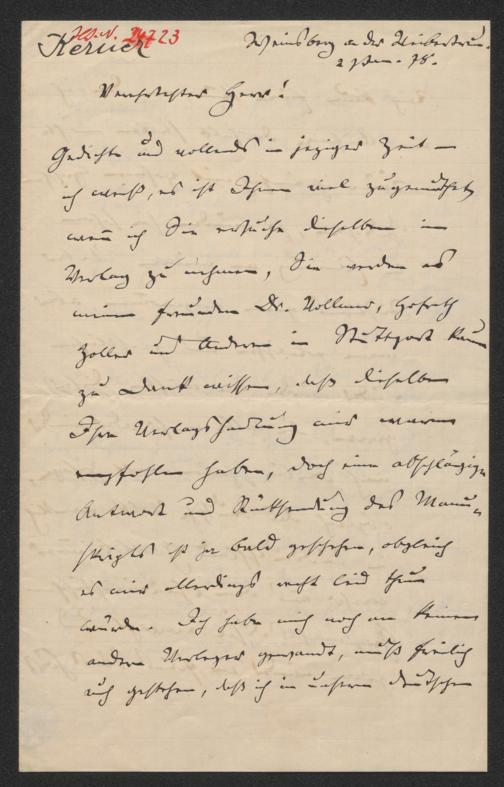 Kerner
24723
Weinsberg an der Weibertreu.
2 Jan. 78.
Verehrtester Herr!
Gedichte und vollends in jeziger Zeit –
ich weiß, es ist Ihnen viel zugemuthet,
wenn ich Sie ersuche dieselben in
Verlag zu nehmen, Sie werden es
meinen Freunden Dr. Vollmer, Hofrath
Zoller und Anderen in Stuttgart kaum
zu Dank wissen, daß dieselben
Ihre Verlagshandlung mir warm
empfohlen haben, doch eine abschlägige
Antwort und Rücksendung des Manu-
skripts ist ja bald geschehen, obgleich
es mir allerdings recht leid thun
würde. Ich habe mich noch an keinen
andern Verleger gewandt, muß freilich
auch gestehen, daß ich in unsern deutschen